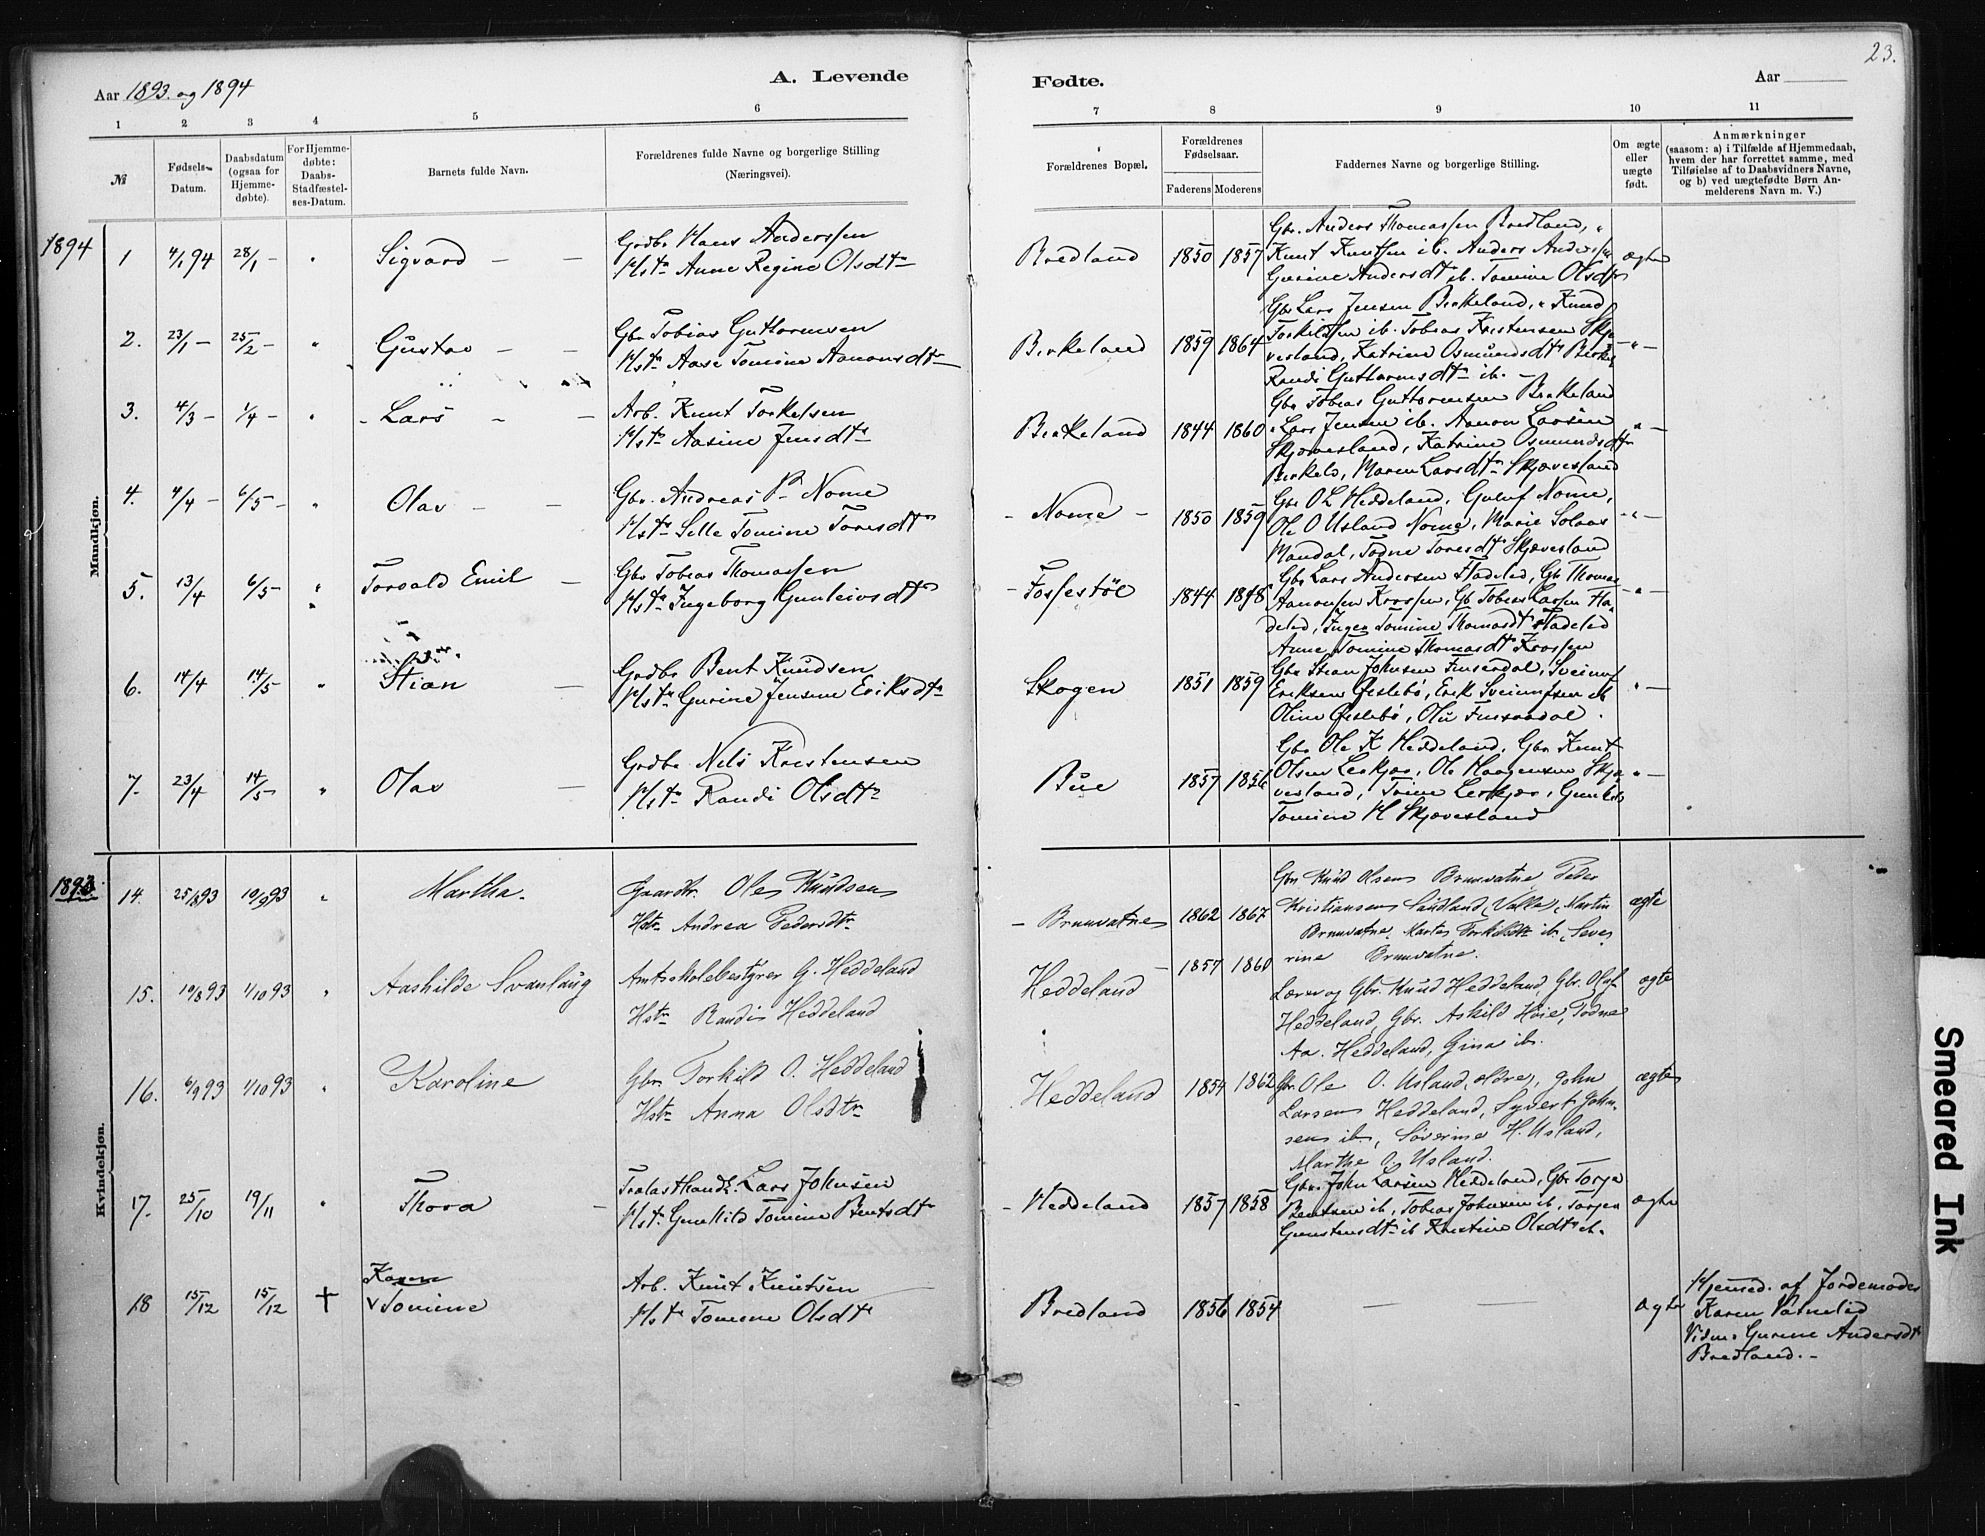 23.
Aar 1893. og 1894
A. Levende
Fødte.
Aar
1 2 3 4 5 6 7 8 9 10 11
№
Fødsels-Datum.
Daabsdatum (ogsaa for Hjemmedøbte).
For Hjemmedøbte: Daabs-Stadfæstelses-Datum.
Barnets fulde Navn.
Forældrenes fulde Navne og borgerlige Stilling (Næringsvei).
Forældrenes Bopæl.
Forældrenes Fødselsaar.
Faderens Moderens
Faddernes Navne og borgerlige Stilling.
Om ægte eller uægte født.
Anmærkninger
(saasom: a) i Tilfælde af Hjemmedaab,
hvem der har forrettet samme, med
Tilføielse af to Daabsvidners Navne,
og b) ved uægtefødte Børn Anmelderens Navn m. V.)
Mandkjøn.
1894
1 4/1 94 28/1 – " Sigvard – –
Grdbr Hans Anderssen
Hstr Anne Regine Olsdtr
Bredland 1850 1857
Gbr. Anders Thomassen Bredland, "
Knut Knutsen ib. Anders Anderssen
Gurine Andersdt ib. Tomine Olsdtr
ægte
2. 23/1 – 25/2 – " Gustav – –
Gbr Tobias Guttormsen
Hstr Aase Tomine Aanonsdtr
Birkeland 1859 1864
Gbr Lars Jensen Birkeland, " Knud
Torkildsen ib. Tobias Kristensen Skjæ
vesland, Katrine Osmundsdt Birkel
Randi Guttormsdtr ib. –
– " –
3. 4/3 – 1/4 – " – Lars – –
Arb. Knut Torkelsen
Hstr Aasine Jensdtr
Birkeland 1844 1860
Gbr Tobias Guttormsen Birkeland
" Lars Jensen ib. Aanon Larsen
Skjævesland, Katrine Osmundsdtr
Birkeld, Maren Larsdtr Skjævesland
" –
4. 4/4 – 6/5 – " Olav – –
Gbr. Andreas P Nome
Hstr Sille Tomine Toresdtr
– Nome – 1850 1859
Gbr O L Heddeland, Nome,
Ole O Usland Nome, Marie Solaas
Mandal, Todne Toresdt Skjævesland
– " –
5. 13/4 6/5 – " Torvald Emil –
Gbr Tobias Thomassen
Hstr Ingeborg Gunleivsdtr
– Fossestøl 1844 1848
Gbr Lars Andersen Fladelid, Gb Thomas
Aanonsen Krossen, Gb Tobias Larsen Fla
delid, Inger Tomine Thomasdt Fladelid
Anne Tomine Thomasdt Krossen
– " –
6. 14/4 14/5 " Stian –
Grdbr Bent Knudsen
Hstr Gurine Jensine Eriksdtr
Skogen 1851 1859
Gbr Stian Johnsen Finsådal, Sveinung
Eriksen Øislebø, Erik Sveinungsen ib
Oline Øislebø,
" –
7. 23/4 14/5 " Olav –
Grdbr Nils Kristensen
Hstr Randi Olsdtr
Bue 1857 1856
Gbr Ole K Heddeland, Gbr Knut
Olsen Leskjær, Ole Haagensen Skjæ
vesland, Leskjær, Gunhild
Tomine H Skjævesland
" –
Kvindekjøn.
1893
14. 25/8 93 10/9 93 " Martha.
Gaardbr. Ole Knudsen
Hstr Andrea Pedersdtr
– Brunvatne 1862 1867
Gbr Knud Olsen Brunvatne Peder
Kristiansen Saudland (Valle, Martin
Brunvatne, Marte Torkildsdtr ib, Seve
rine Brunvatne.
ægte
15. 19/8 93 1/10 93 " Aashilde Svanlaug
Amtsskolebestyrer G. Heddeland
Hstr Randi Heddeland
Heddeland – 1857 1860
Lærer og Gbr. Knud Heddeland, Gbr. Olaf
Heddeland, Gbr. Askild Høie, Todne
Aa. Heddeland, Gina ib.
ægte
16. 6/9 93 1/10 93 " Karoline
Gbr Torkild O. Heddeland
Hstr Anna Olsdtr
Heddeland 1854 1862
Gbr. Ole O. Usland, ældre, John
Larsen Heddeland, Syvert John-
sen ib, Søverine H. Usland,
Marthe O. Usland.
ægte
17. 25/10 19/11 " Thora –
Trælasthandl. Lars Johnsen
Hstr Gunhild Tomine Bentsdtr
– Heddeland 1857 1858
Gbr. John Larsen Heddeland, Gbr Torje
Bentsen ib, Tobias Johnsen ib, Torjer
Gunstensdtr ib Kristine Olsdtr ib.
ægte
18 15/12 15/12 † Karen
v Tomine
Arb. Knut Knutsen
Hstr Tomine Olsdtr
Bredland 1856 1854 — —
ægte
Hjemmed. af Jordemoder
Karen Vatnelid
Vidn. Gurine Andersdt
Bredland. –
Smeared Ink